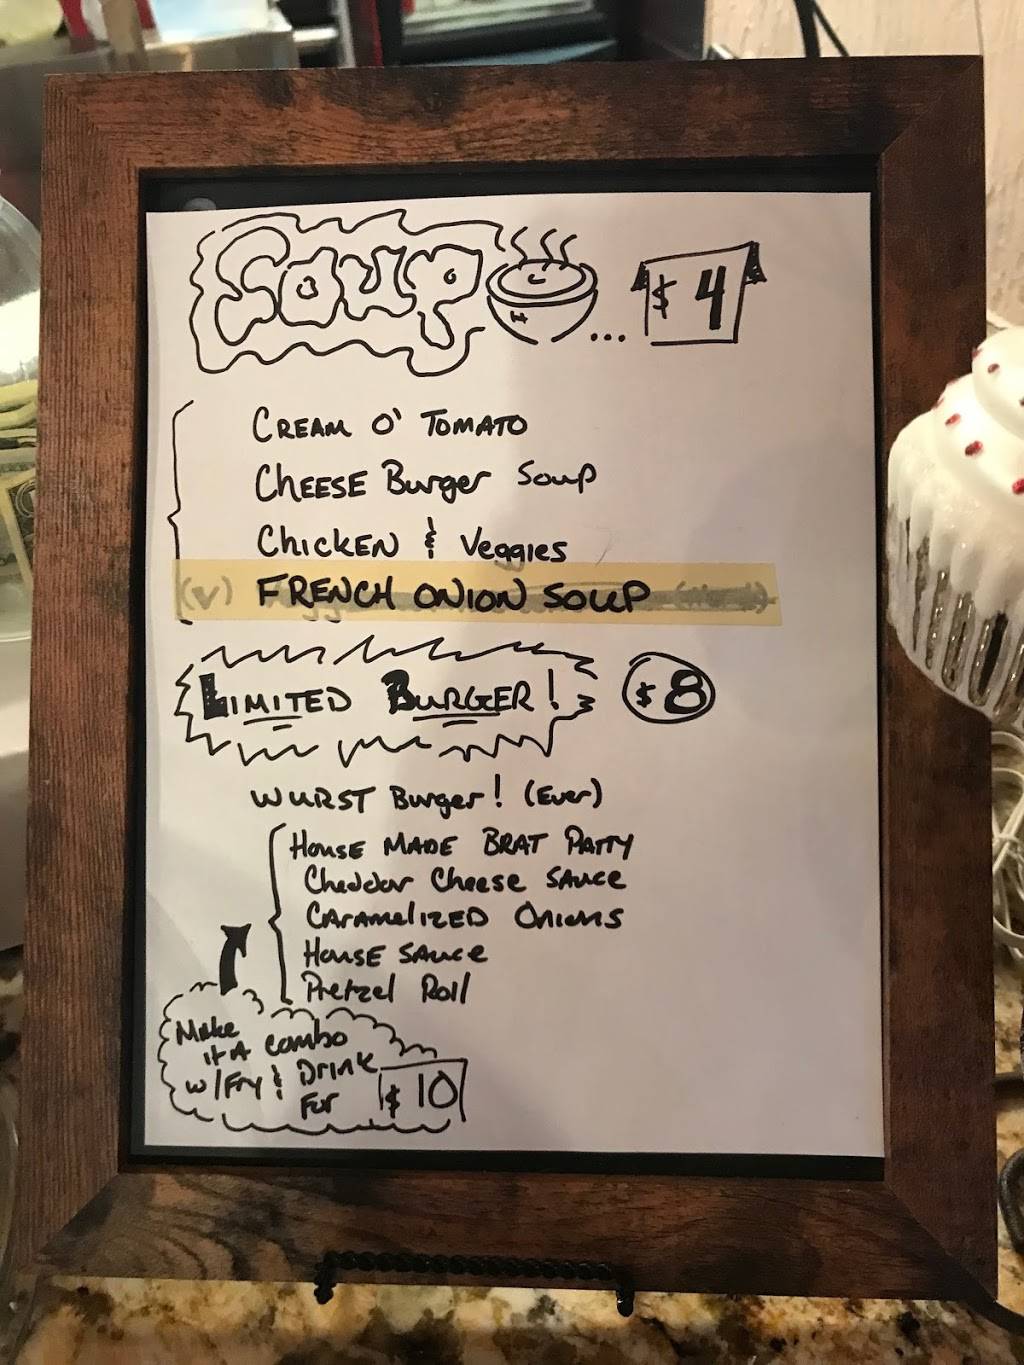 Soup ... $4
CREAM O' TOMATO
CHEESE Burger Soup
CHICKEN & Veggies
(V) FRENCH ONION SOUP
LIMITED BURGER! $8
WURST Burger! (Ever)
House MADE BRAT PATTY
Cheddar Cheese SAUCE
CARAMELIZED ONIONS
HOUSE SAUCE
Pretzel Roll
Make
it A combo
w/Fry & Drink
For $10